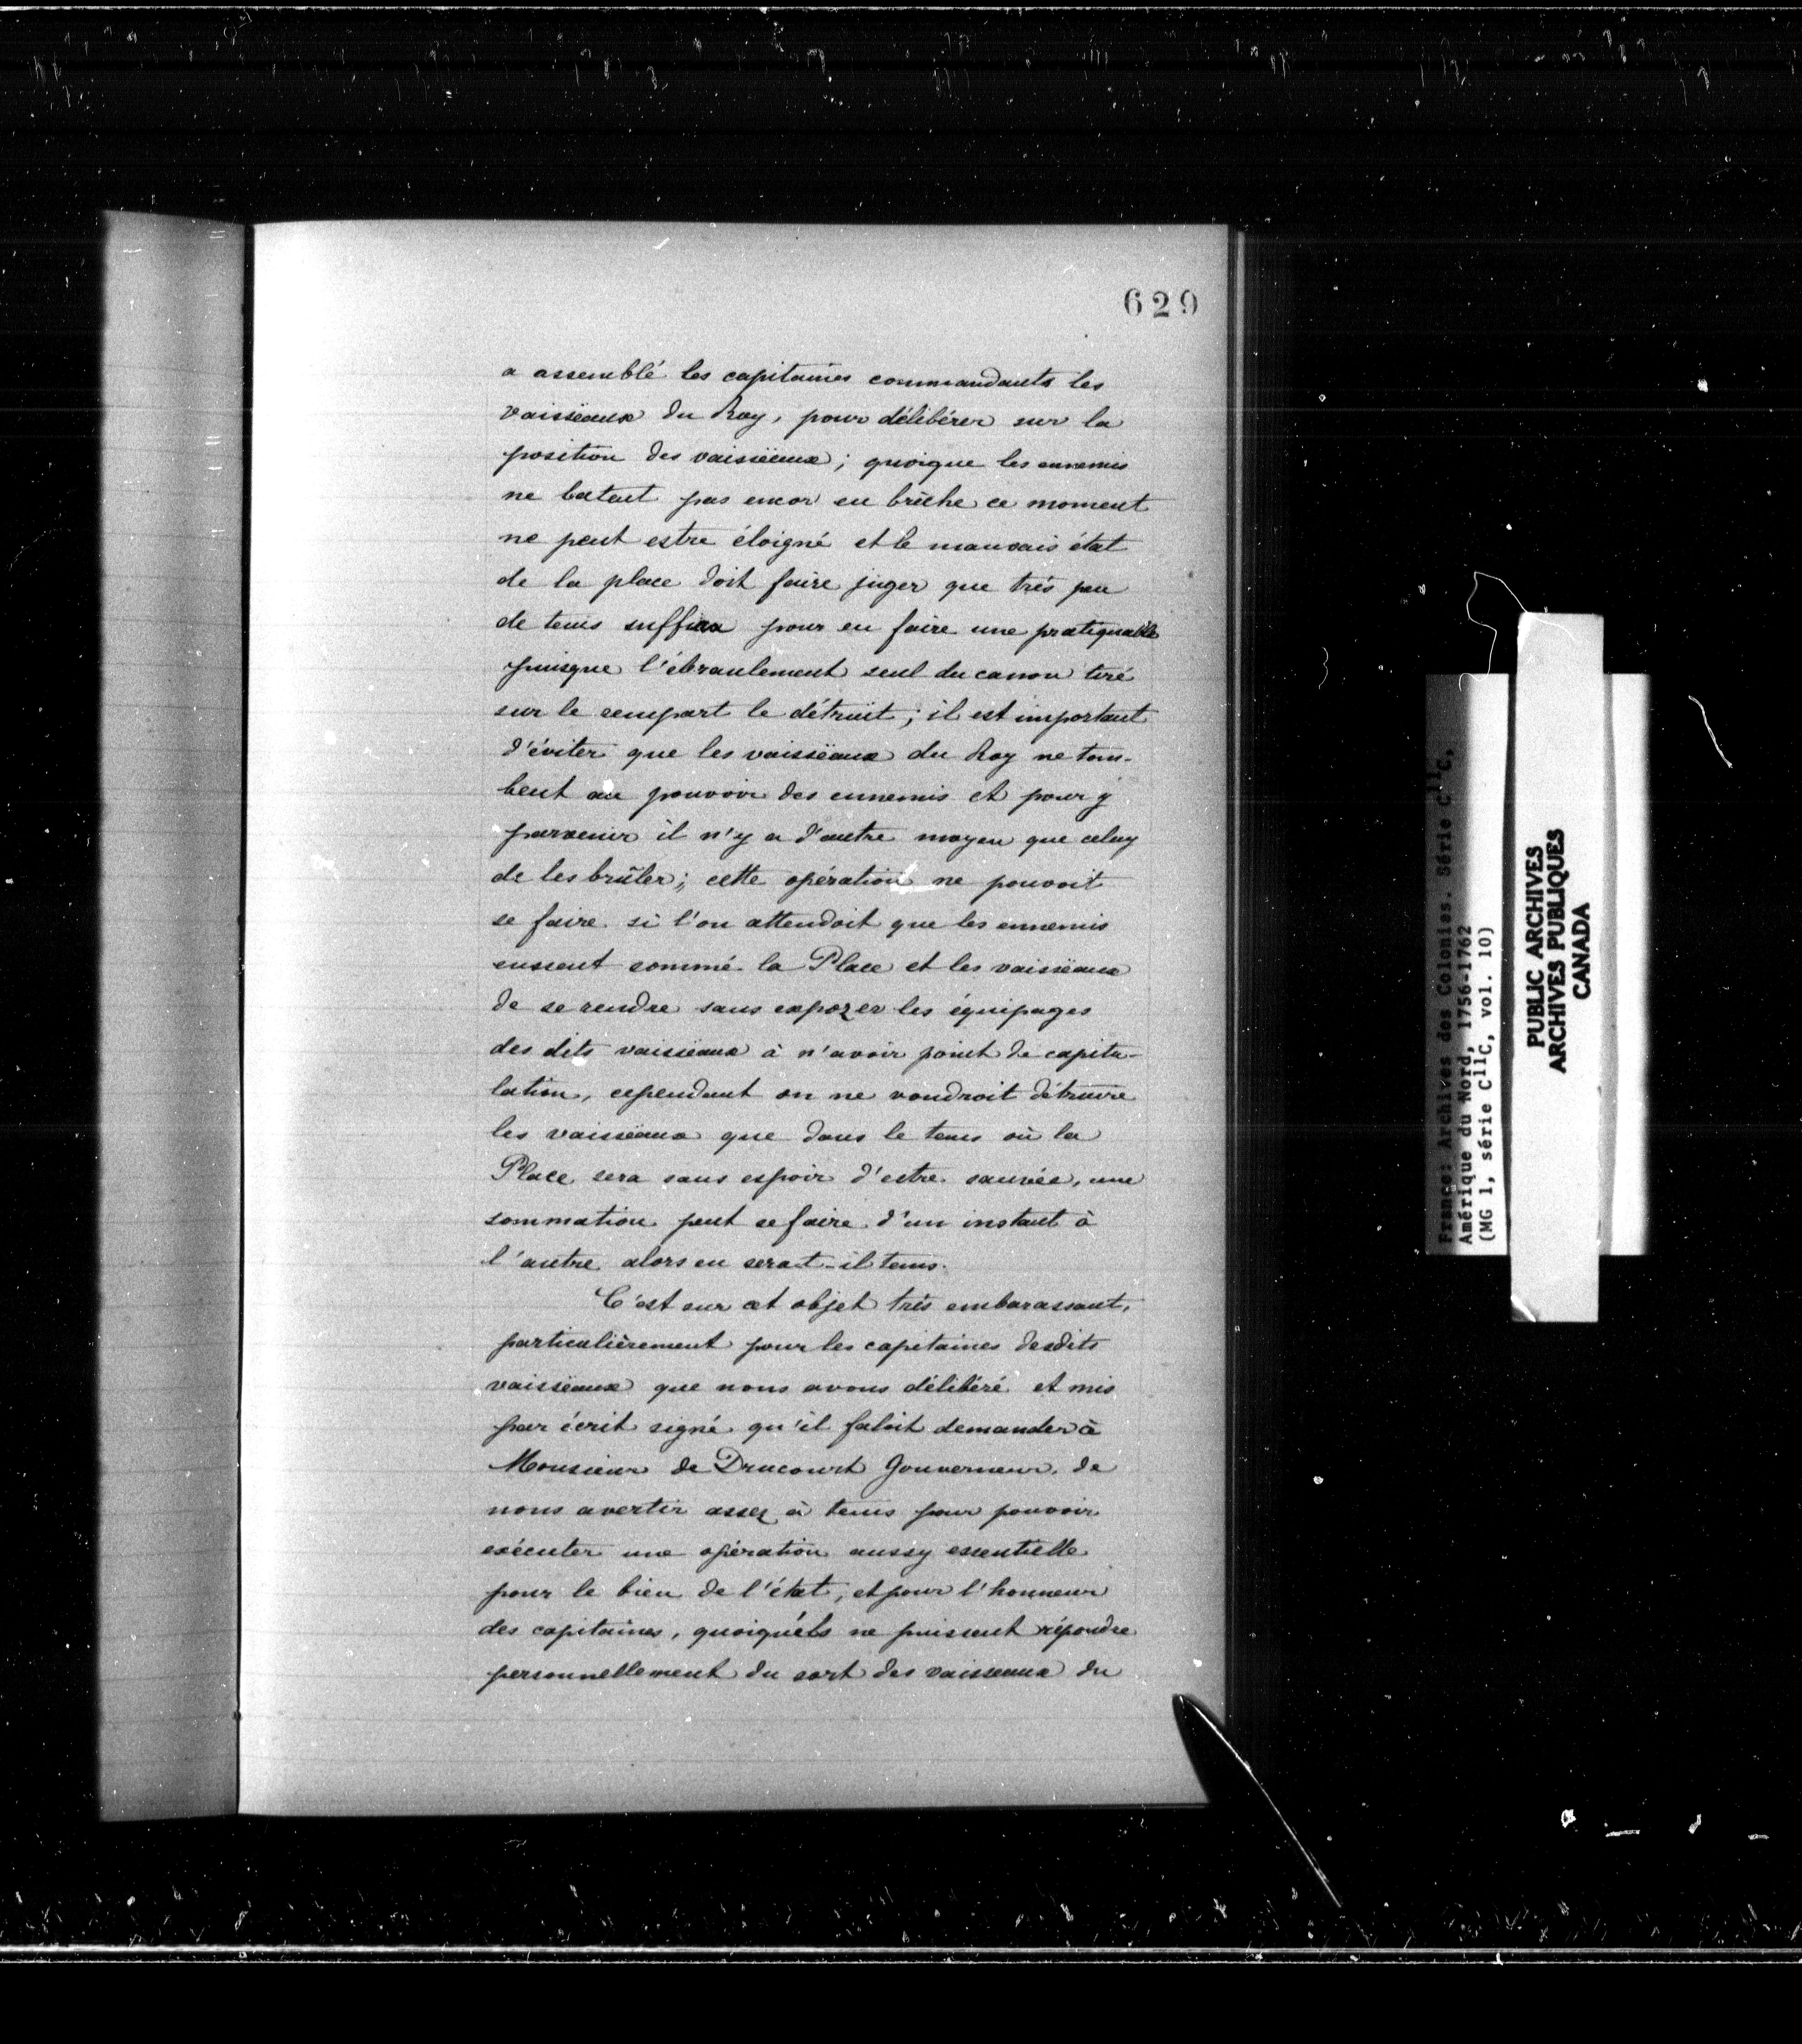 629
a assemblé les capitaines commandants les
vaisseaux du Roy, pour délibérer sur la
position des vaisseaux; quoique les ennemis
ne batent pas encor en brèche ce moment
ne peut estre éloigné et le mauvais état
de la place doit faire juger que très peu
de tems suffira pour en faire une pratiquable
puisque l'ébranlement seul du canon tiré
sur le rempart le détruit; il est important
d'éviter que les vaisseaux du Roy ne tom-
bent au pouvoir des ennemis et pour y
parvenir il n'y a d'autre moyen que celuy
de les brûler; cette opération ne pouvoit
se faire si l'on attendoit que les ennemis
eussent sommé la Place et les vaisseaux
de se rendre sans expozer les équipages
des dits vaisseaux à n'avoir point de capitu-
lation, cependant on ne voudroit détruire
les vaisseaux que dans le tems où la
Place sera sans espoir d'estre sauvée, une
sommation peut se faire d'un instant à
l'autre alors en serat-il tems.
C'est sur cet objet très embarassant,
particulièrement pour les capitaines desdits
vaisseaux que nous avons délibéré et mis
par écrit signé qu'il faloit demander à
Monsieur de Drucourt Gouverneur, de
nous avertir assez à tems pour pouvoir
exécuter une opération aussy essentielle
pour le bien de l'état, et pour l'honneur
des capitaines, quoiqu'éls ne puissent répondre
personnellement du sort des vaisseaux du
France: Archives des Colonies. Série C11C,
Amérique du Nord, 1756-1762
(MG 1, série C11C, vol. 10)
PUBLIC ARCHIVES
ARCHIVES PUBLIQUES
CANADA